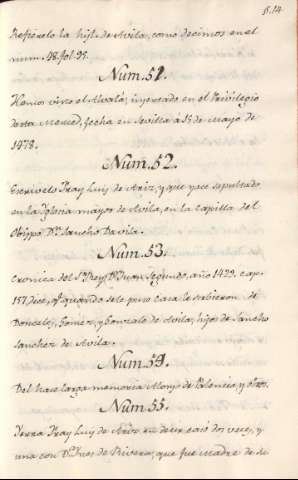 514
Refierelo la hist. de Avila, como decimos en el
num. 48. fol. 95.
Num. 51.
Hemos visto el Alvalá, insertado en el Privilegio
desta Merced, fecha en Sevilla à 15 de Mayo de
1478.
Num. 52.
Escrivelo Fray Luis de Ariz, y que yace sepultado
en la Iglesia mayor de Avila, en la capilla del
Obispo Dn. Sancho Davila.
Num. 53.
Cronica del Sr. Rey Dn. Juan Segundo, año 1429. cap.
157. dice, q. quando se le puso Casa le sirvieron de
Donceles, Gomez, y Gonzalo de Avila, hijos de Sancho
Sanchez de Avila.
Num. 54.
Del hace larga memoria Alonso de Palencia, y otros.
Num. 55.
Yerra Fray Luis de Ariz en decir casó dos veces, y
una con Da. Ines de Rivera, que fue madre de su